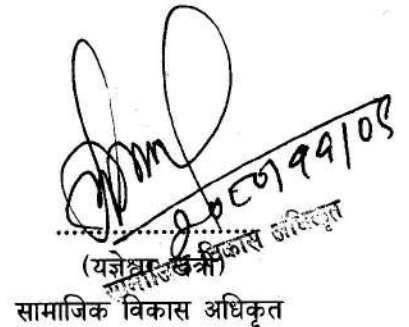 २०८०।११।०९
सामाजिक विकास अधिकृत
(यज्ञेश्वर खत्री)
सामाजिक विकास अधिकृत